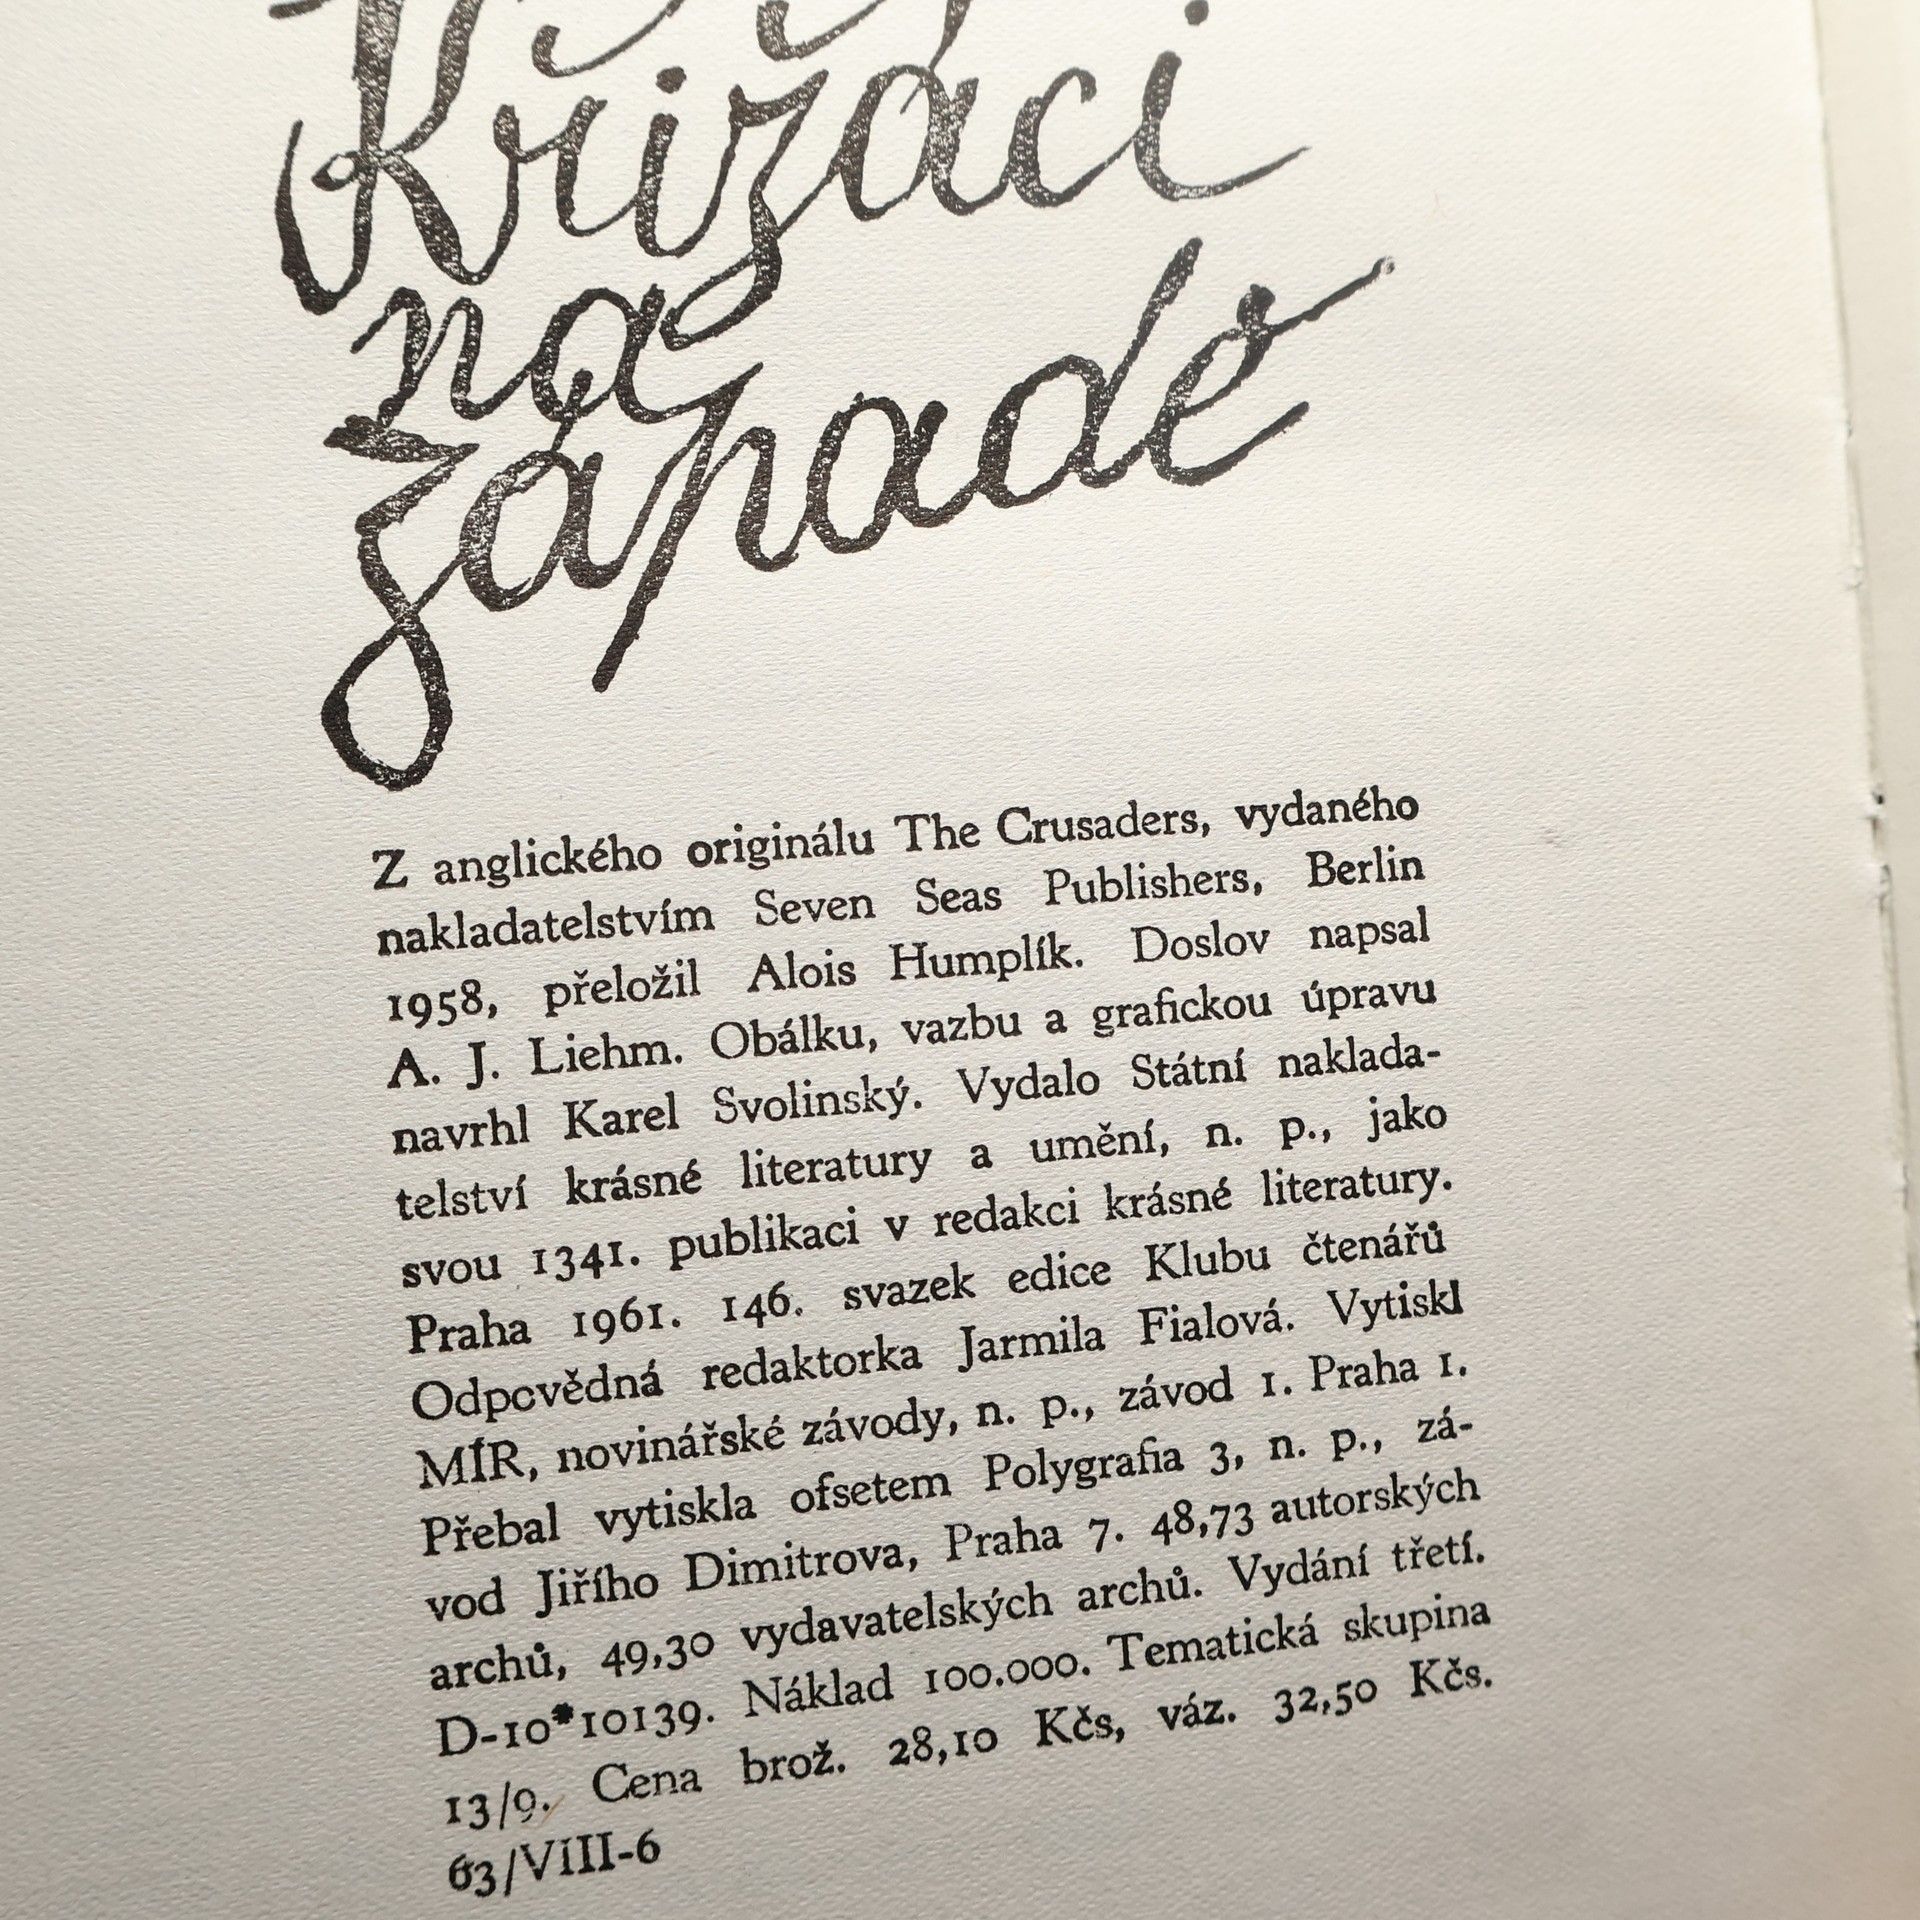 Křižáci
na
západě
Z anglického originálu The Crusaders, vydaného
nakladatelstvím Seven Seas Publishers, Berlin
1958, přeložil Alois Humplík. Doslov napsal
A. J. Liehm. Obálku, vazbu a grafickou úpravu
navrhl Karel Svolinský. Vydalo Státní naklada-
telství krásné literatury a umění, n. p., jako
svou 1341. publikaci v redakci krásné literatury.
Praha 1961. 146. svazek edice Klubu čtenářů
Odpcvědná redaktorka Jarmila Fialová. Vytiskl
MÍR, novinářské závody, n. p., závod 1. Praha 1.
Přebal vytiskla ofsetem Polygrafia 3, n. p., zá-
vod Jiřího Dimitrova, Praha 7. 48,73 autorských
archů, 49,30 vydavatelských archů. Vydání třetí.
D-10*10139. Náklad 100.000. Tematická skupina
13/9. Cena brož. 28,10 Kčs, váz. 32,50 Kčs.
63/VIII-6